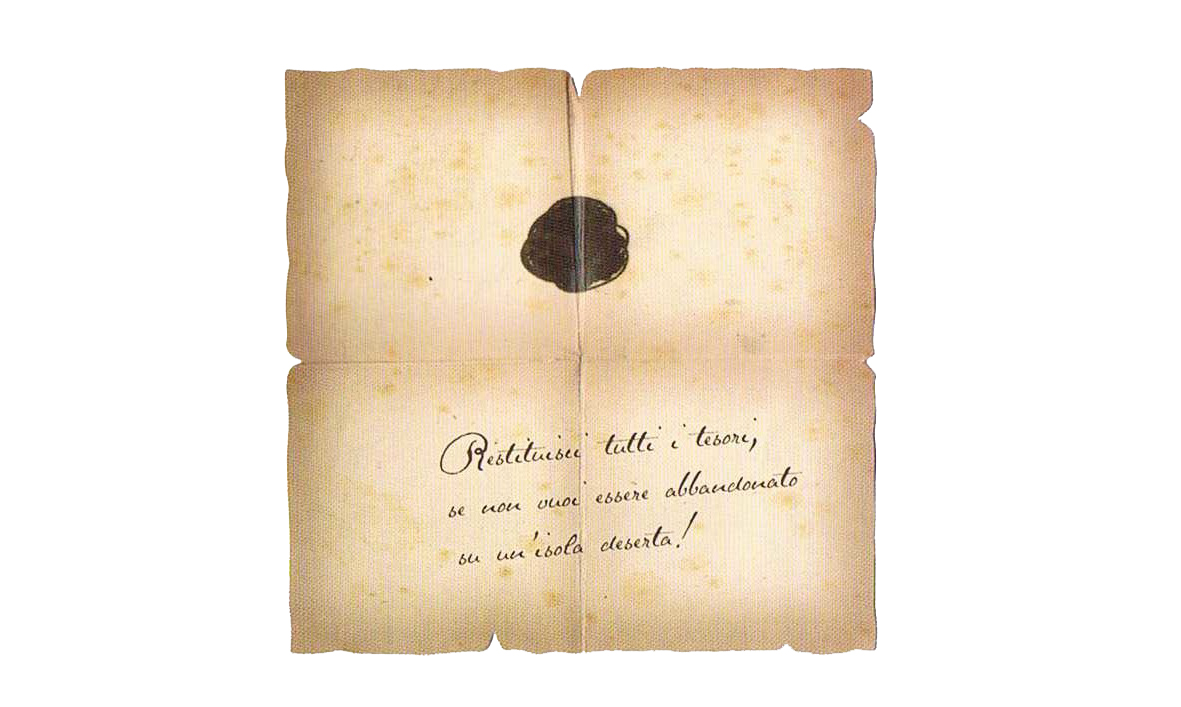 Restituisci tutti i tesori,
se non vuoi essere abbandonato
su un'isola deserta!